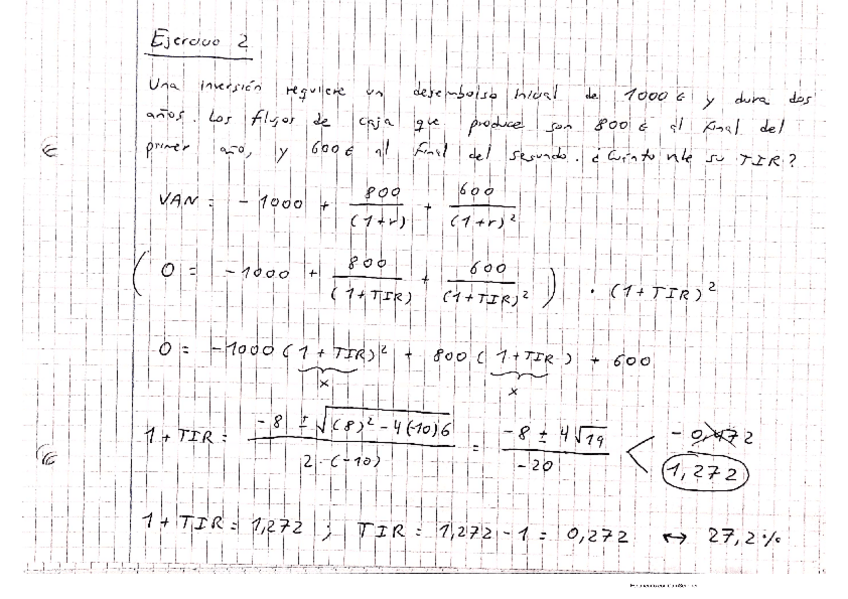 Ejercicio 2
Una inversión requiere un desembolso inicial de 1000 € y dura dos
años. Los flujos de caja que produce son 800 € al final del
primer año, y 600 € al final del segundo. ¿Cuánto vale su TIR?
VAN = -1000 + 800/(1+r) + 600/(1+r)²
(0 = -1000 + 800/(1+TIR) + 600/(1+TIR)²) · (1+TIR)²
0 = -1000 (1+TIR)² + 800 (1+TIR) + 600
x x
1+TIR = (-8 ± √((8)² - 4(-10)6))/(2·(-10)) = (-8 ± 4√19)/(-20) < -0,472
1,272
1+TIR = 1,272 ; TIR = 1,272 - 1 = 0,272 ↔ 27,2 %